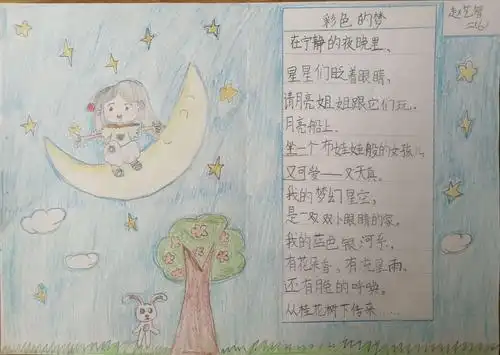 彩色的梦
在宁静的夜晚里、
星星们眨着眼睛,
请月亮姐姐跟它们玩.
月亮船上.
坐一个布娃娃般的女孩儿
又可爱——又天真.
我的梦幻星空,
是一双双小眼睛的家.
我的蓝色银河系.
有花朵香。有流星雨.
还有脆的呼唤。
从桂花树下传来……